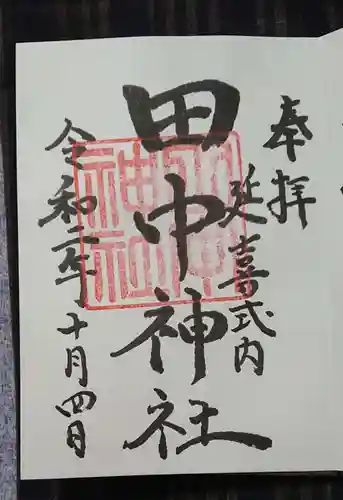 奉拝
延喜式内
田中神社
令和二年十月四日